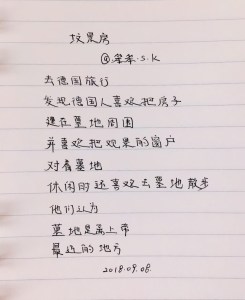 坟景房
@笨笨.s.k
去德国旅行
发现德国人喜欢把房子
建在墓地周围
并喜欢把观景的窗户
对着墓地
休闲时还喜欢去墓地散步
他们认为
墓地是离上帝
最近的地方
2018.09.08.